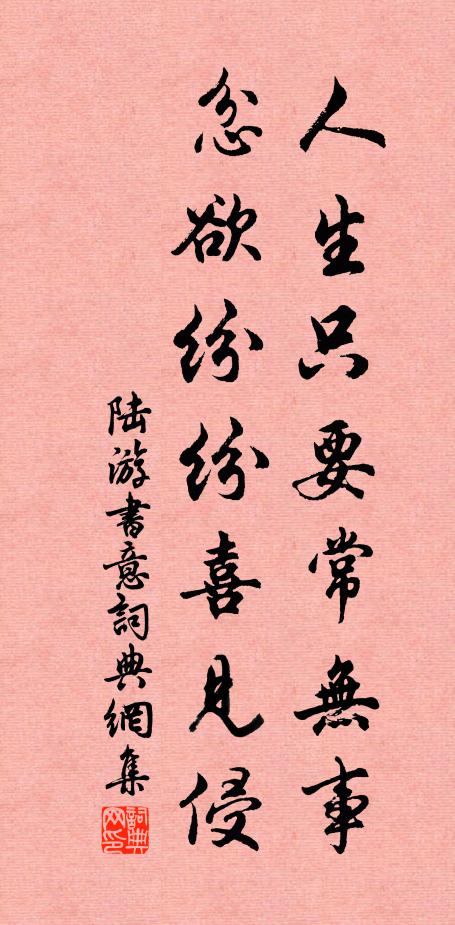 人生只要常無事
忿欲紛紛喜見侵
陆游書意詞典網集
詞典网印